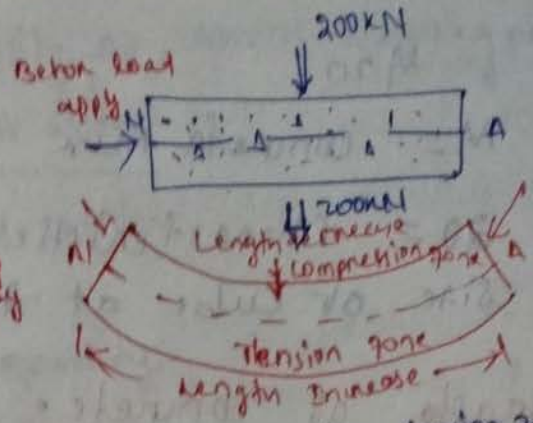 200KN
Before load
apply
N A
200KN
Length decrease
compression zone
N A
Tension zone
Length Increase